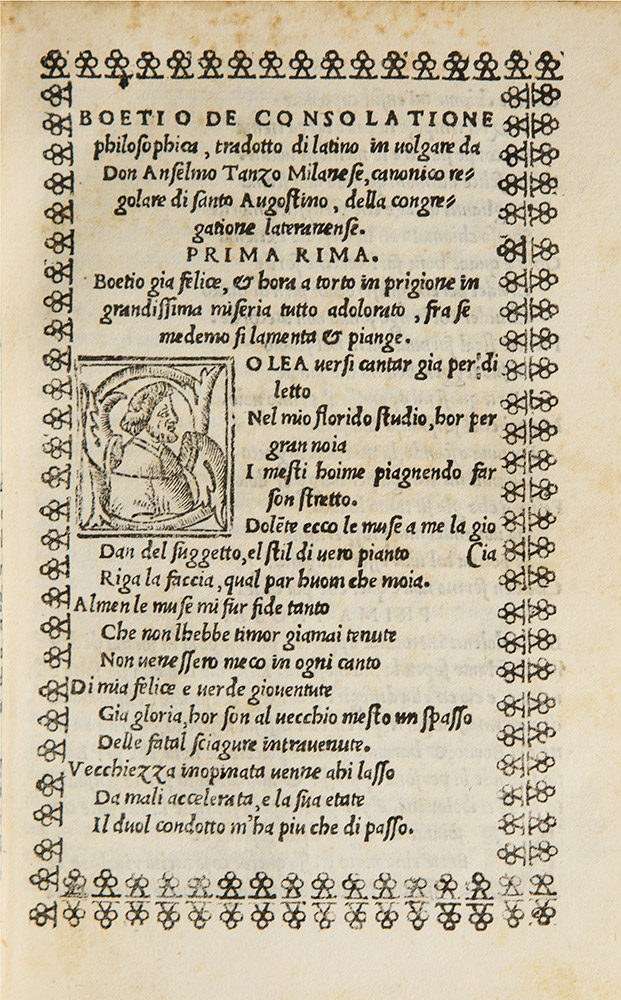 BOETIO DE CONSOLATIONE
philosophica, tradotto di latino in uolgare da
Don Anselmo Tanzo Milanese, canonico re=
golare di santo Augostino, della congre=
gatione lateranense.
PRIMA RIMA.
Boetio gia felice, & hora a torto in prigione in
grandissima miseria tutto adolorato, fra se
medemo si lamenta & piange.
SOLEA uersi cantar gia per di
letto
Nel mio florido studio, hor per
gran noia
I mesti hoime piagnendo far
son stretto.
Dolēte ecco le muse a me la gio
Dan del suggetto, el stil di uero pianto Cia
Riga la faccia, qual par huom che moia.
Almen le muse mi fur fide tanto
Che non lhebbe timor giamai tenute
Non uenessero meco in ogni canto
Di mia felice e uerde giouentute
Gia gloria, hor son al uecchio mesto un spasso
Delle fatal sciagure intrauenute.
Vecchiezza inopinata uenne ahi lasso
Da mali accelerata, e la sua etate
Il duol condotto m'ha piu che di passo.